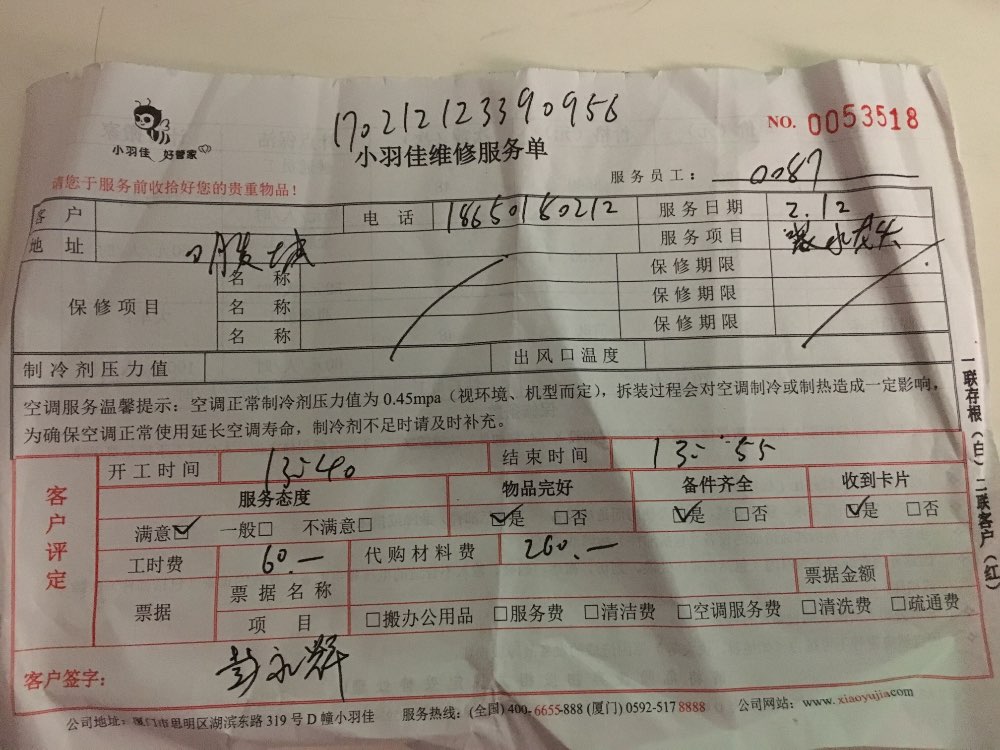 17021212339095б
小羽佳 好管家
小羽佳维修服务单
NO. 0053518
请您于服务前收拾好您的贵重物品!
服务员工: 0087
客户 电话 18650180212 服务日期 2.12
地址 服务项目 装水龙头
保修项目 名称 保修期限
名称 保修期限
名称 保修期限
制冷剂压力值 出风口温度
空调服务温馨提示:空调正常制冷剂压力值为 0.45mpa(视环境、机型而定),拆装过程会对空调制冷或制热造成一定影响,
为确保空调正常使用延长空调寿命,制冷剂不足时请及时补充。
客户评定
开工时间 13:40 结束时间 13:55
服务态度 物品完好 备件齐全 收到卡片
满意☑ 一般□ 不满意□ ☑是 □否 ☑是 □否 ☑是 □否
工时费 60.— 代购材料费 260.—
票据 票据名称 票据金额
项目 □搬办公用品 □服务费 □清洁费 □空调服务费 □清洗费 □疏通费
客户签字: 彭永辉
公司地址:厦门市思明区湖滨东路 319 号 D 幢小羽佳 服务热线:(全国) 400-6655-888 (厦门) 0592-517 8888 公司网站:www.xiaoyujia.com
一联存根(白) 二联客户(红)